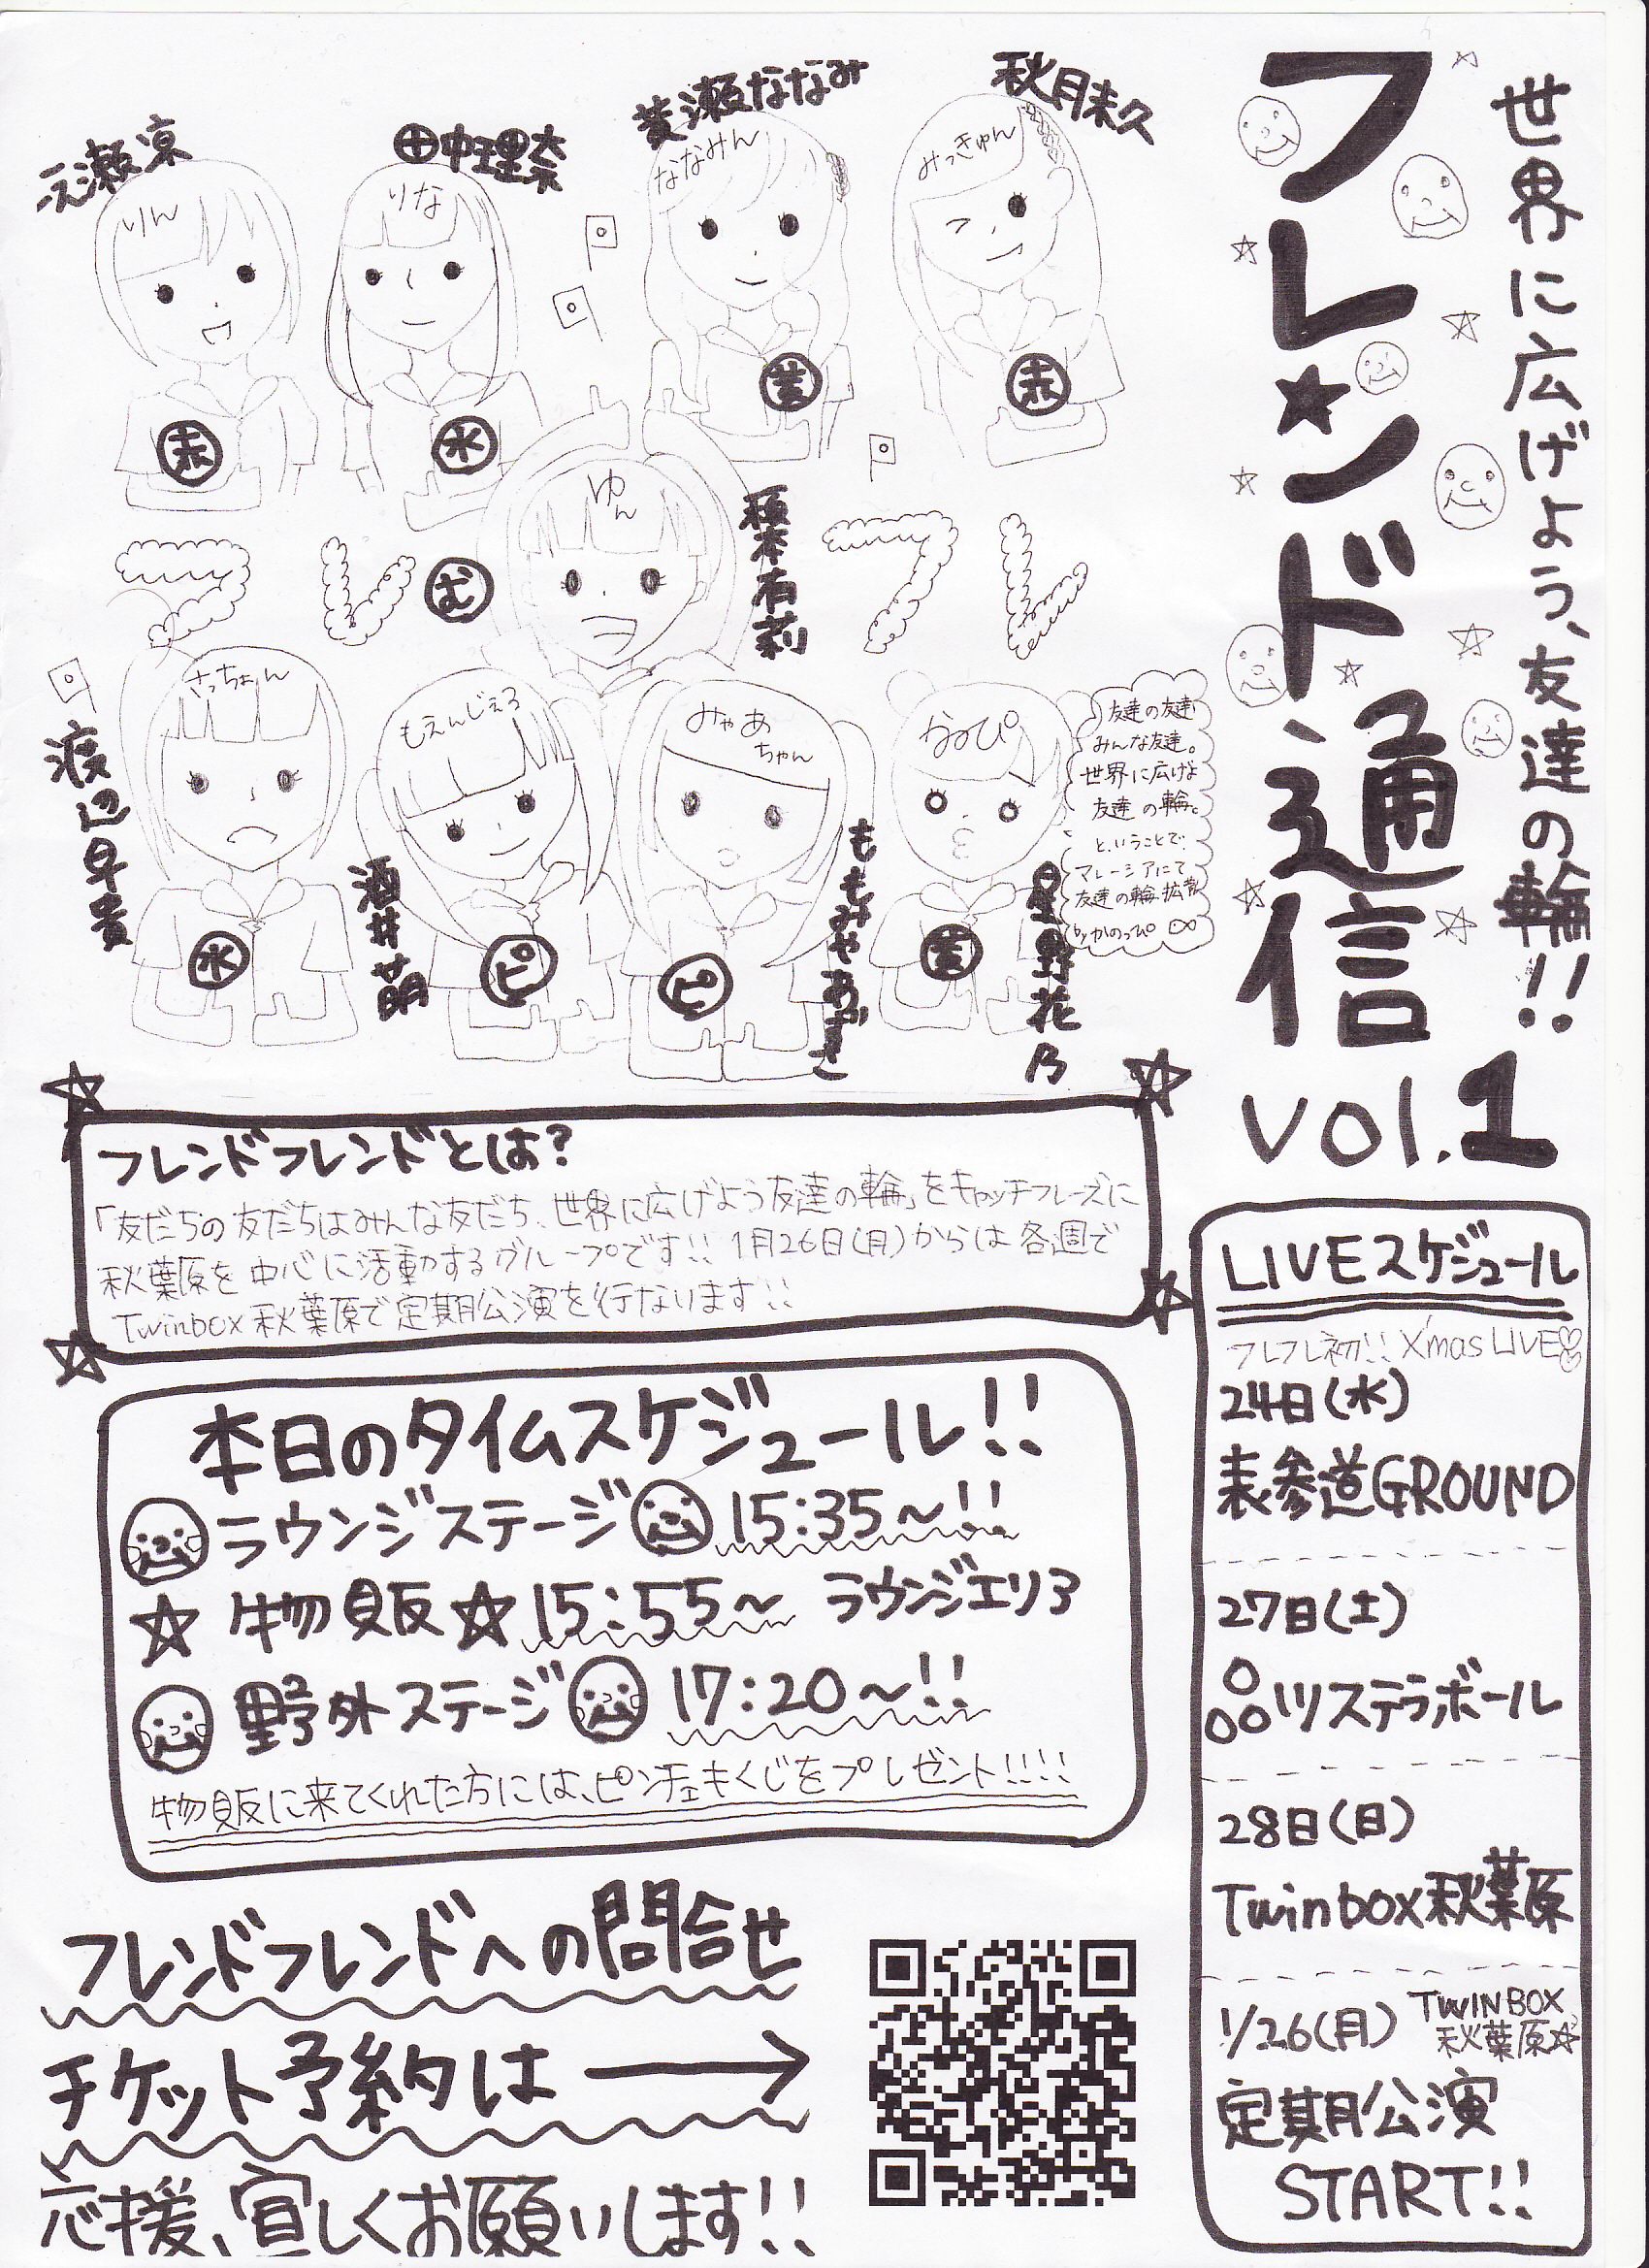 世界に広げよう、友達の輪!!
フレ★ンド通信
vol.1
秋月未久
みっきゅん
赤
黄瀬ななみ
ななみん
黄
田中理奈
りな
水
瀬涼
りん
赤
榎本有莉
ゆん
む
フレ
フレ
渡辺早貴
さっちょん
水
酒井萌
もえんじぇる
ピ
ももみやあずさ
みゃあ
ちゃん
ピ
星野花乃
かのぴ
黄
友達の友達
みんな友達。
世界に広げよ
友達の輪。
ということで、
マレーシアにて
友達の輪拡散
by かのっぴ
フレンドフレンドとは?
「友だちの友だちはみんな友だち、世界に広げよう友達の輪」をキャッチフレーズに
秋葉原を中心に活動するグループです!! 1月26日(月)からは各週で
Twinbox秋葉原で定期公演を行なります!!
本日のタイムスケジュール!!
ラウンジステージ 15:35~!!
☆物販☆15:55~ ラウンジエリア
野外ステージ 17:20~!!
物販に来てくれた方には、ピンチェキくじをプレゼント!!!!
LIVEスケジュール
フレフレ初!! X'mas LIVE♡
24日(水)
表参道GROUND
27日(土)
品川ステラボール
28日(日)
Twinbox秋葉原
1/26(月) TWINBOX
秋葉原☆
定期公演
START!!
フレンドフレンドへの問合せ
チケット予約は→
応援、宜しくお願いします!!